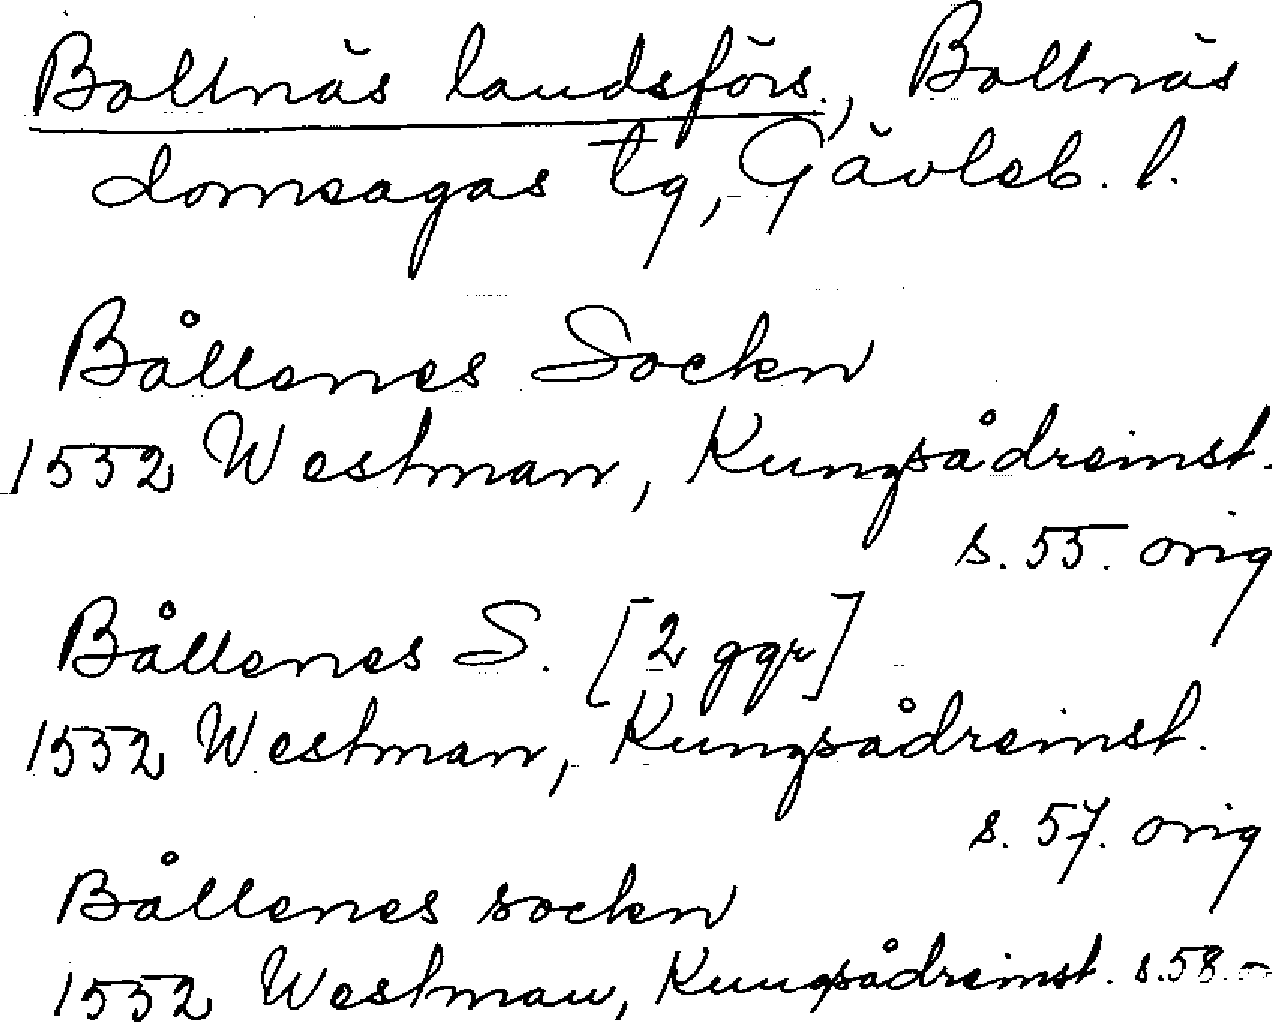 Bollnäs landsförs., Bollnäs
domsagas tg, Gävleb. l.
Bållenes Sockn
1552 Westman, Kungsådreinst.
s. 55. orig
Bållenes S. [2 ggr]
1552 Westman, Kungsådreinst.
s. 57. orig
Bållenes sockn
1552 Westman, Kungsådreinst. s. 58.